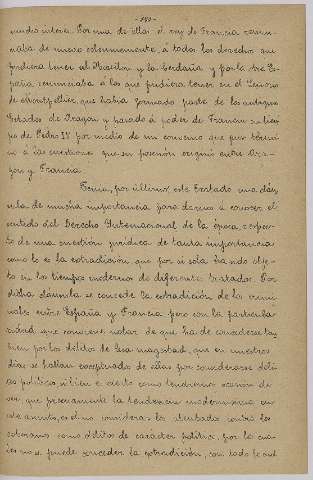 - 180 -
mucho interes. Por una de ellas el rey de Francia renun-
ciaba de nuevo solemnemente, á todos los derechos que
pudiera tener al Rosellon y la Cerdaña y por la otra Es-
paña renunciaba á los que pudiera tener en el Señorio
de Montpellier, que habia formado parte de los antiguos
Estados de Aragon y pasado á poder de Francia en tiem-
po de Pedro IV por medio de un convenio que puso térmi-
no á las cuestiones que su posesión originó entre Ara-
gon y Francia.
Tiene, por último, este Tratado una cláu-
sula de mucha importancia para darnos á conocer el
sentido del Derecho Internacional de la época, respec-
to de una cuestión juridica de tanta importancia
como lo es la extradición, que por si sola ha sido obje-
to en los tiempos modernos de diferentes tratados. Por
dicha cláusula se concede la extradición de los crimi-
nales entre España y Francia pero con la particula-
ridad que conviene notar de que ha de concederse tam-
bien por los delitos de lesa magestad, que en nuestros
dias se hallan exceptuados de ellas por considerarse deli-
tos politicos, si bien es cierto como tendremos ocasión de
ver que precisamente la tendencia modernisima en
este asunto, es el no considerar los atentados contra los
soberanos como delitos de carácter politico, por la cua-
les no se puede conceder la extradición, con todo lo cual